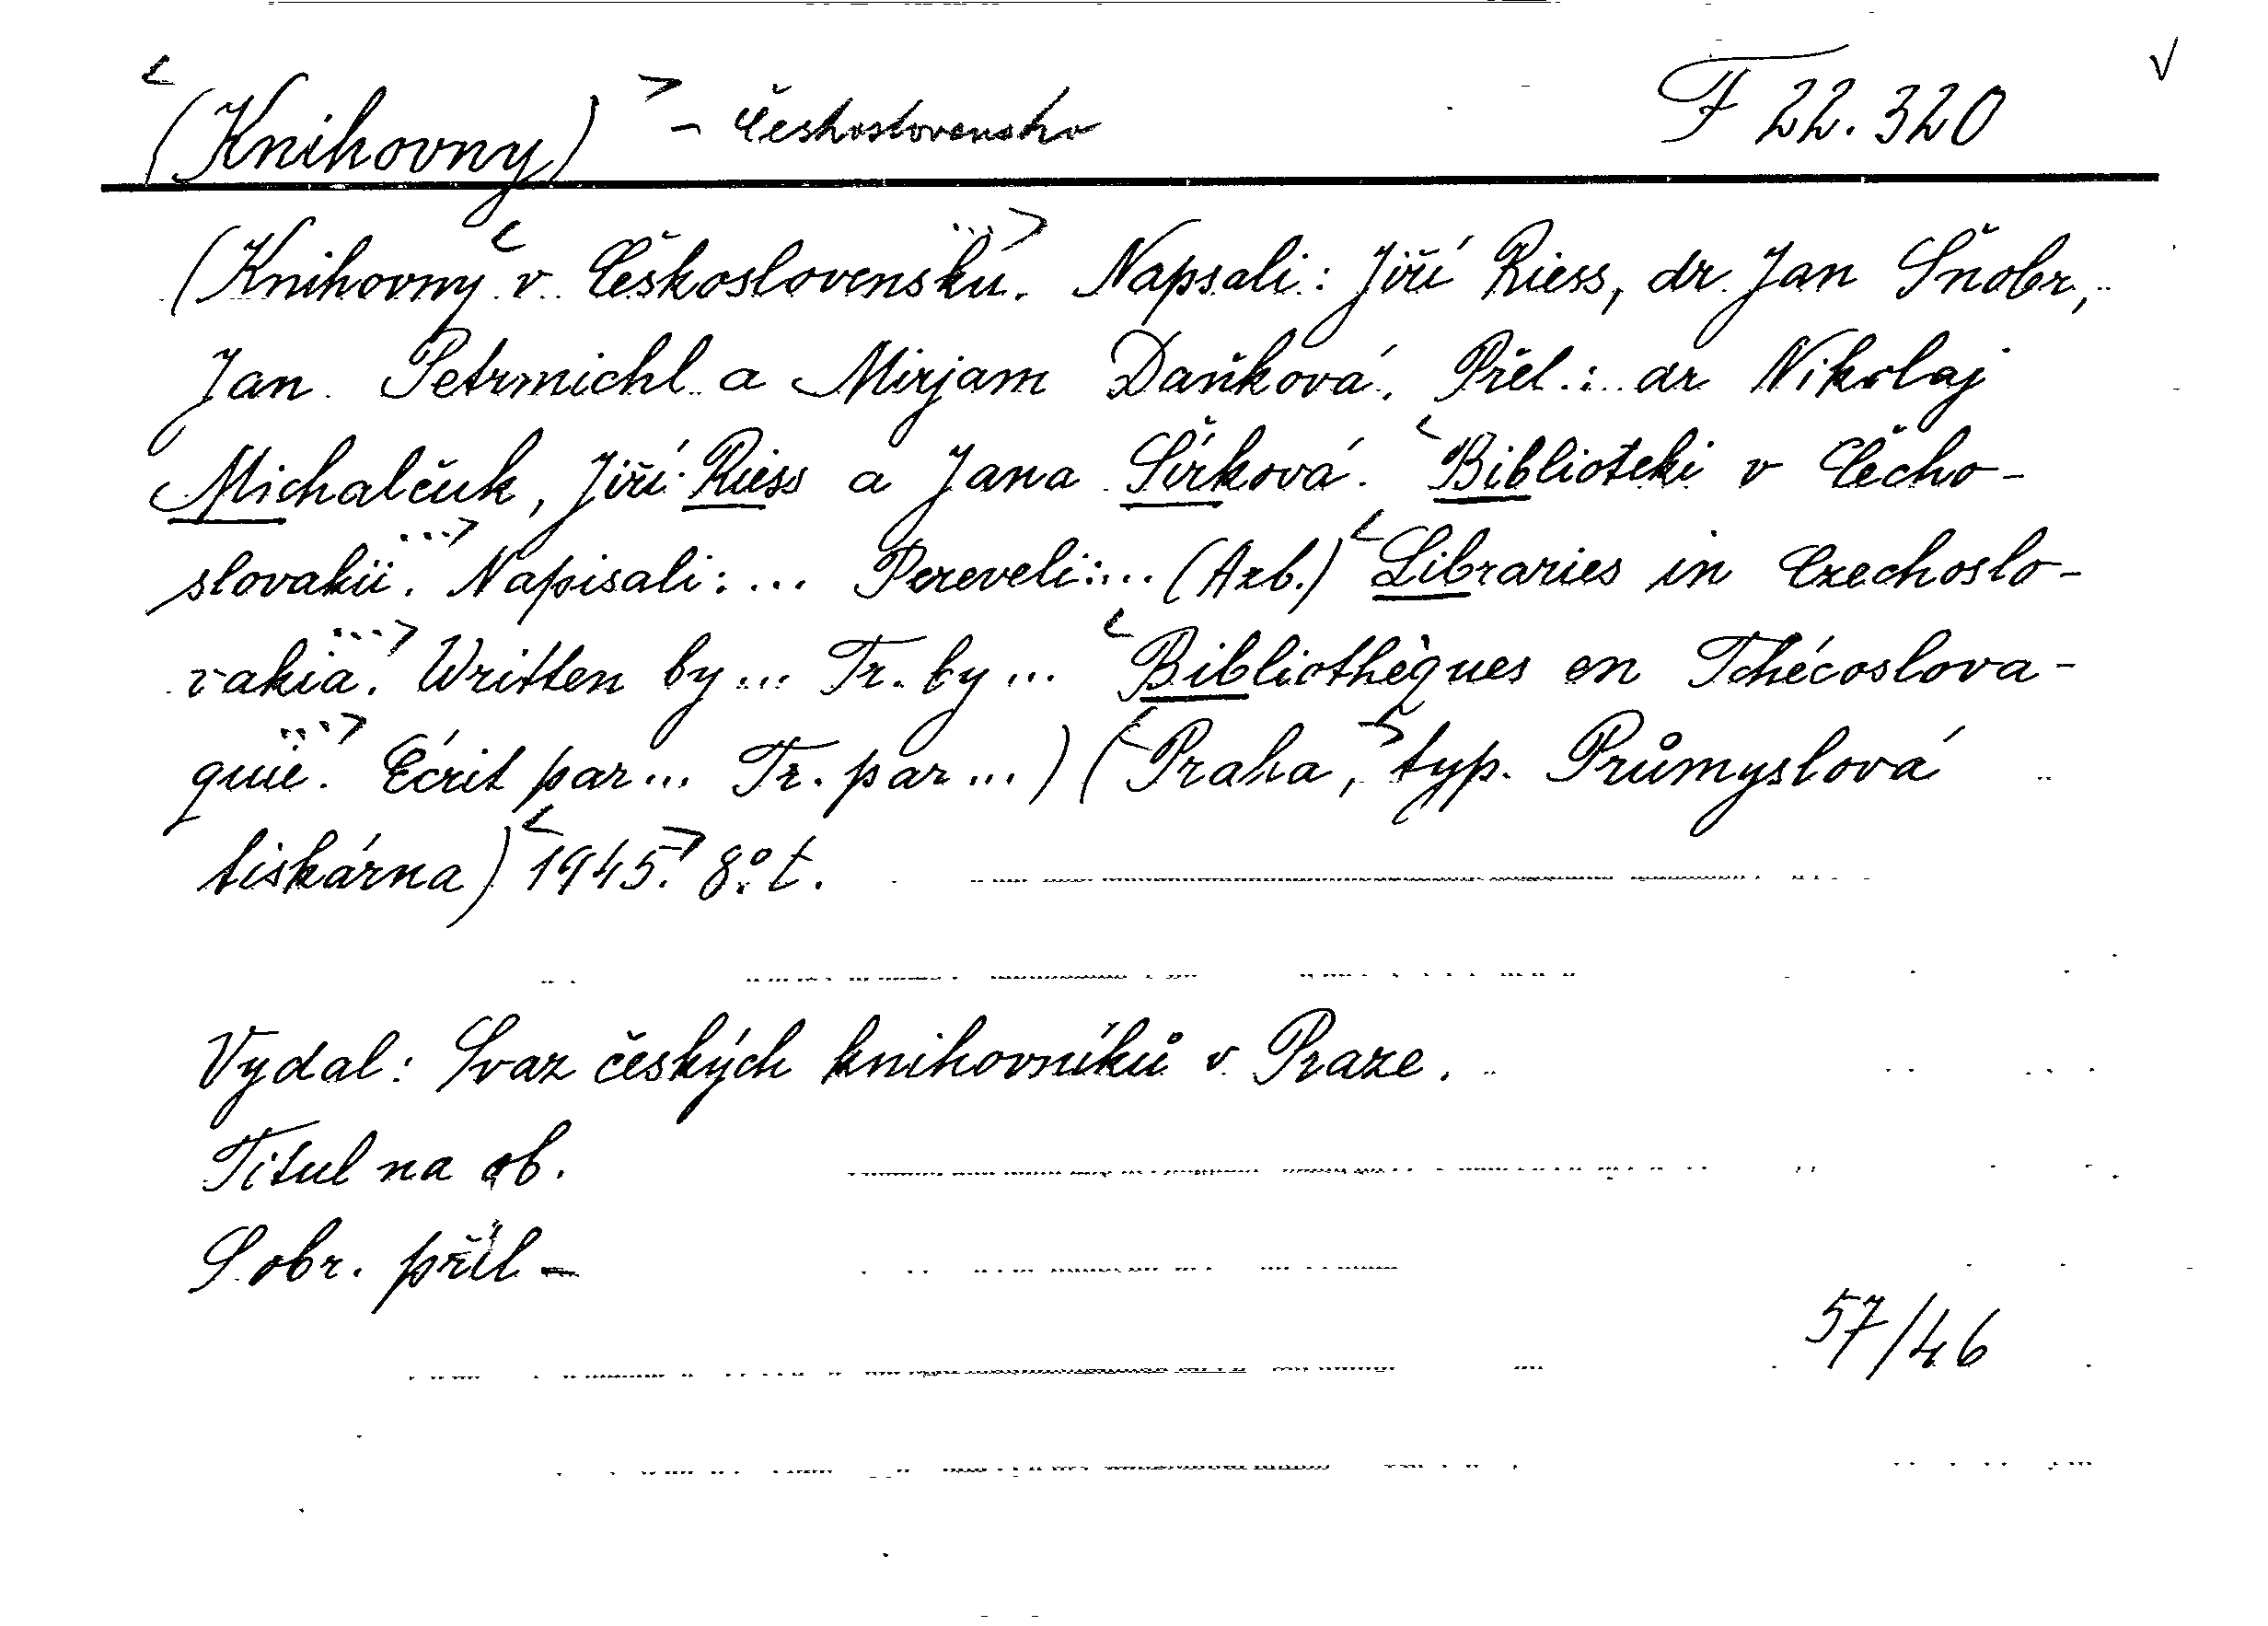 (Knihovny) - Československo F 22.320
(Knihovny v Československu. Napsali: Jiří Riess, dr. Jan Šnobr,
Jan Petrmichl a Mirjam Daňková. Přel.: dr Nikolaj
Michalčuk, Jiří Riess a Jana Šírková. Biblioteki v Čecho-
slovakii. Napisali: ... Pereveli: ... (Azb.) Libraries in Czechoslo-
vakia. Written by ... Tr. by ... Bibliothèques en Tchécoslova-
quie. Écrit par ... Tr. par ...) (Praha, typ. Průmyslová
tiskárna) 1945. 8° t.
Vydal: Svaz českých knihovníků v Praze.
Titul na ob.
S obr. příl -
57/46